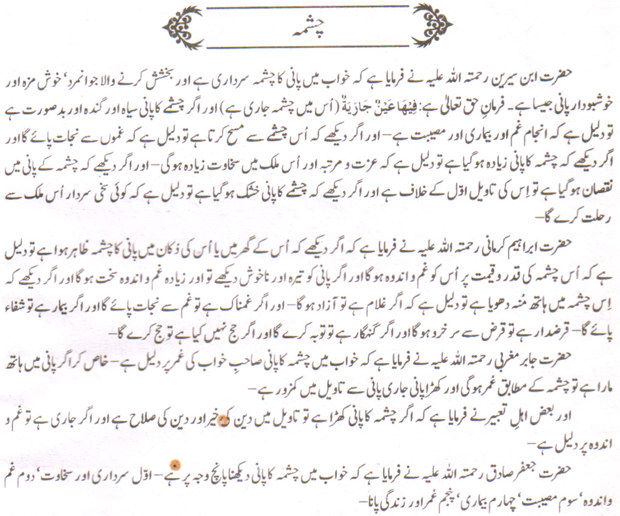 چشمہ
حضرت ابن سیرین رحمتہ اللہ علیہ نے فرمایا ہے کہ خواب میں پانی کا چشمہ سرداری ہے اور بخشش کرنے والا جوانمرد‘ خوش مزہ اور
خوشبودار پانی جیسا ہے۔ فرمانِ حق تعالیٰ ہے: فِيهَا عَيْنٌ جَارِيَةٌ (اُس میں چشمہ جاری ہے) اور اگر چشمے کا پانی سیاہ اور گندہ اور بدصورت ہے
تو دلیل ہے کہ انجام غم اور بیماری اور مصیبت ہے – اور اگر دیکھے کہ اُس چشمے سے مسح کرتا ہے تو دلیل ہے کہ غموں سے نجات پائے گا اور
اگر دیکھے کہ چشمہ کا پانی زیادہ ہو گیا ہے تو دلیل ہے کہ عزت و مرتبہ اور اُس ملک میں سخاوت زیادہ ہو گی – اور اگر دیکھے کہ چشمہ کے پانی میں
نقصان ہو گیا ہے تو اِس کی تاویل اوّل کے خلاف ہے اور اگر دیکھے کہ چشمے کا پانی خشک ہو گیا ہے تو دلیل ہے کہ کوئی سخی سردار اُس ملک سے
رحلت کرے گا –
حضرت ابراہیم کرمانی رحمتہ اللہ علیہ نے فرمایا ہے کہ اگر دیکھے کہ اُس کے گھر میں یا اُس کی دُکان میں پانی کا چشمہ ظاہر ہوا ہے تو دلیل
ہے کہ اُس چشمہ کی قدر و قیمت پر اُس کو غم و اندوہ ہو گا اور اگر پانی کو تیرہ اور ناخوش دیکھے تو اور زیادہ غم و اندوہ سخت ہو گا اور اگر دیکھے کہ
اِس چشمہ میں ہاتھ مُنہ دھویا ہے تو دلیل ہے کہ اگر غلام ہے تو آزاد ہو گا – اور اگر غمناک ہے تو غم سے نجات پائے گا اور اگر بیمار ہے تو شفاء
پائے گا – قرضدار ہے تو قرض سے سرخرو ہو گا اور اگر گنہگار ہے تو توبہ کرے گا اور اگر حج نہیں کیا ہے تو حج کرے گا –
حضرت جابر مغربی رحمتہ اللہ علیہ نے فرمایا ہے کہ خواب میں چشمہ کا پانی صاحبِ خواب کی عمر پر دلیل ہے – خاص کر اگر پانی میں ہاتھ
مارا ہے تو چشمہ کے مطابق عمر ہو گی اور کھڑا پانی جاری پانی سے تاویل میں کمزور ہے –
اور بعض اہلِ تعبیر نے فرمایا ہے کہ اگر چشمہ کا پانی کھڑا ہے تو تاویل میں دین کی خیر اور دین کی صلاح ہے اور اگر جاری ہے تو غم و
اندوہ پر دلیل ہے –
حضرت جعفر صادق رحمتہ اللہ علیہ نے فرمایا ہے کہ خواب میں چشمہ کا پانی دیکھنا پانچ وجہ پر ہے – اوّل سرداری اور سخاوت‘ دوم غم
و اندوہ‘ سوم مصیبت‘ چہارم بیماری‘ پنجم عمر اور زندگی پانا –